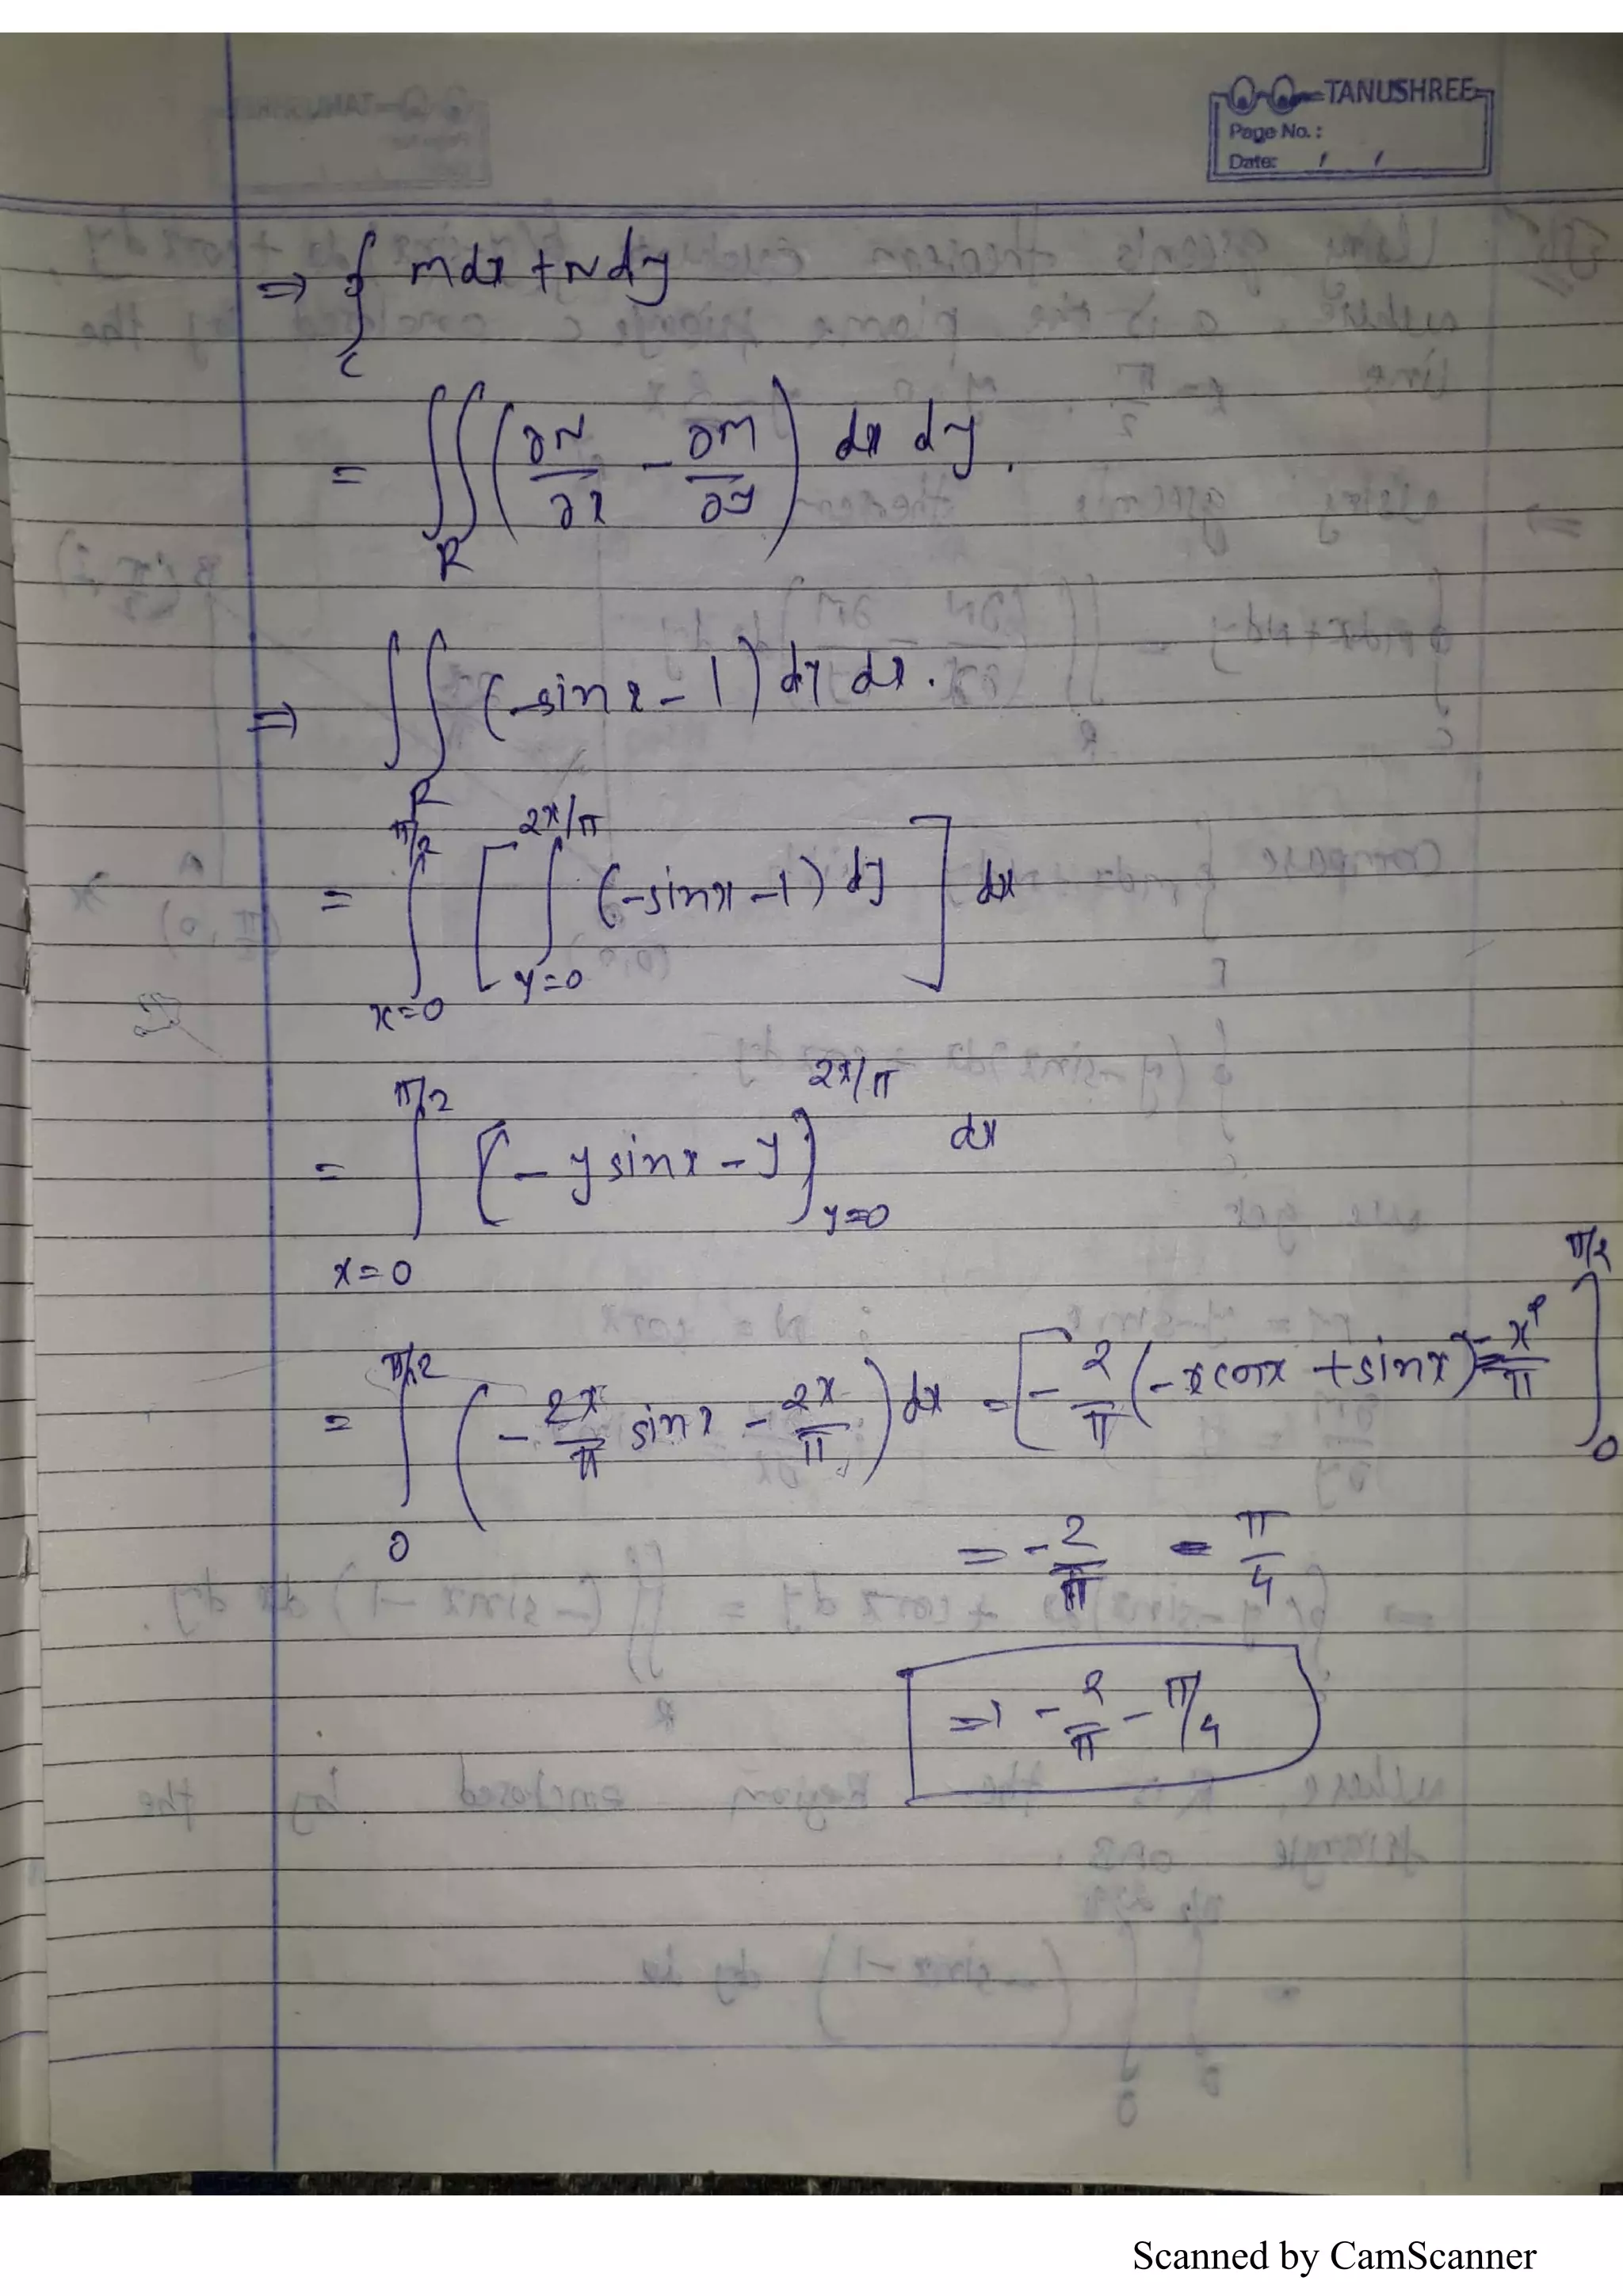 TANUSHREE
Page No. :
Date: / /
⇒ ∮_C mdx + Ndy
= ∬_R (∂N/∂x - ∂M/∂y) dx dy.
⇒ ∬_R (-sinx - 1) dy dx.
= ∫_{x=0}^{π/2} [ ∫_{y=0}^{2x/π} (-sinx - 1) dy ] dx
= ∫_{x=0}^{π/2} [-y sinx - y]_{y=0}^{2x/π} dx
= ∫_0^{π/2} (-2x/π sinx - 2x/π) dx = [-2/π (-x cosx + sinx) - x²/π]_0^{π/2}
= -2/π - π/4
⇒ -2/π - π/4
Scanned by CamScanner